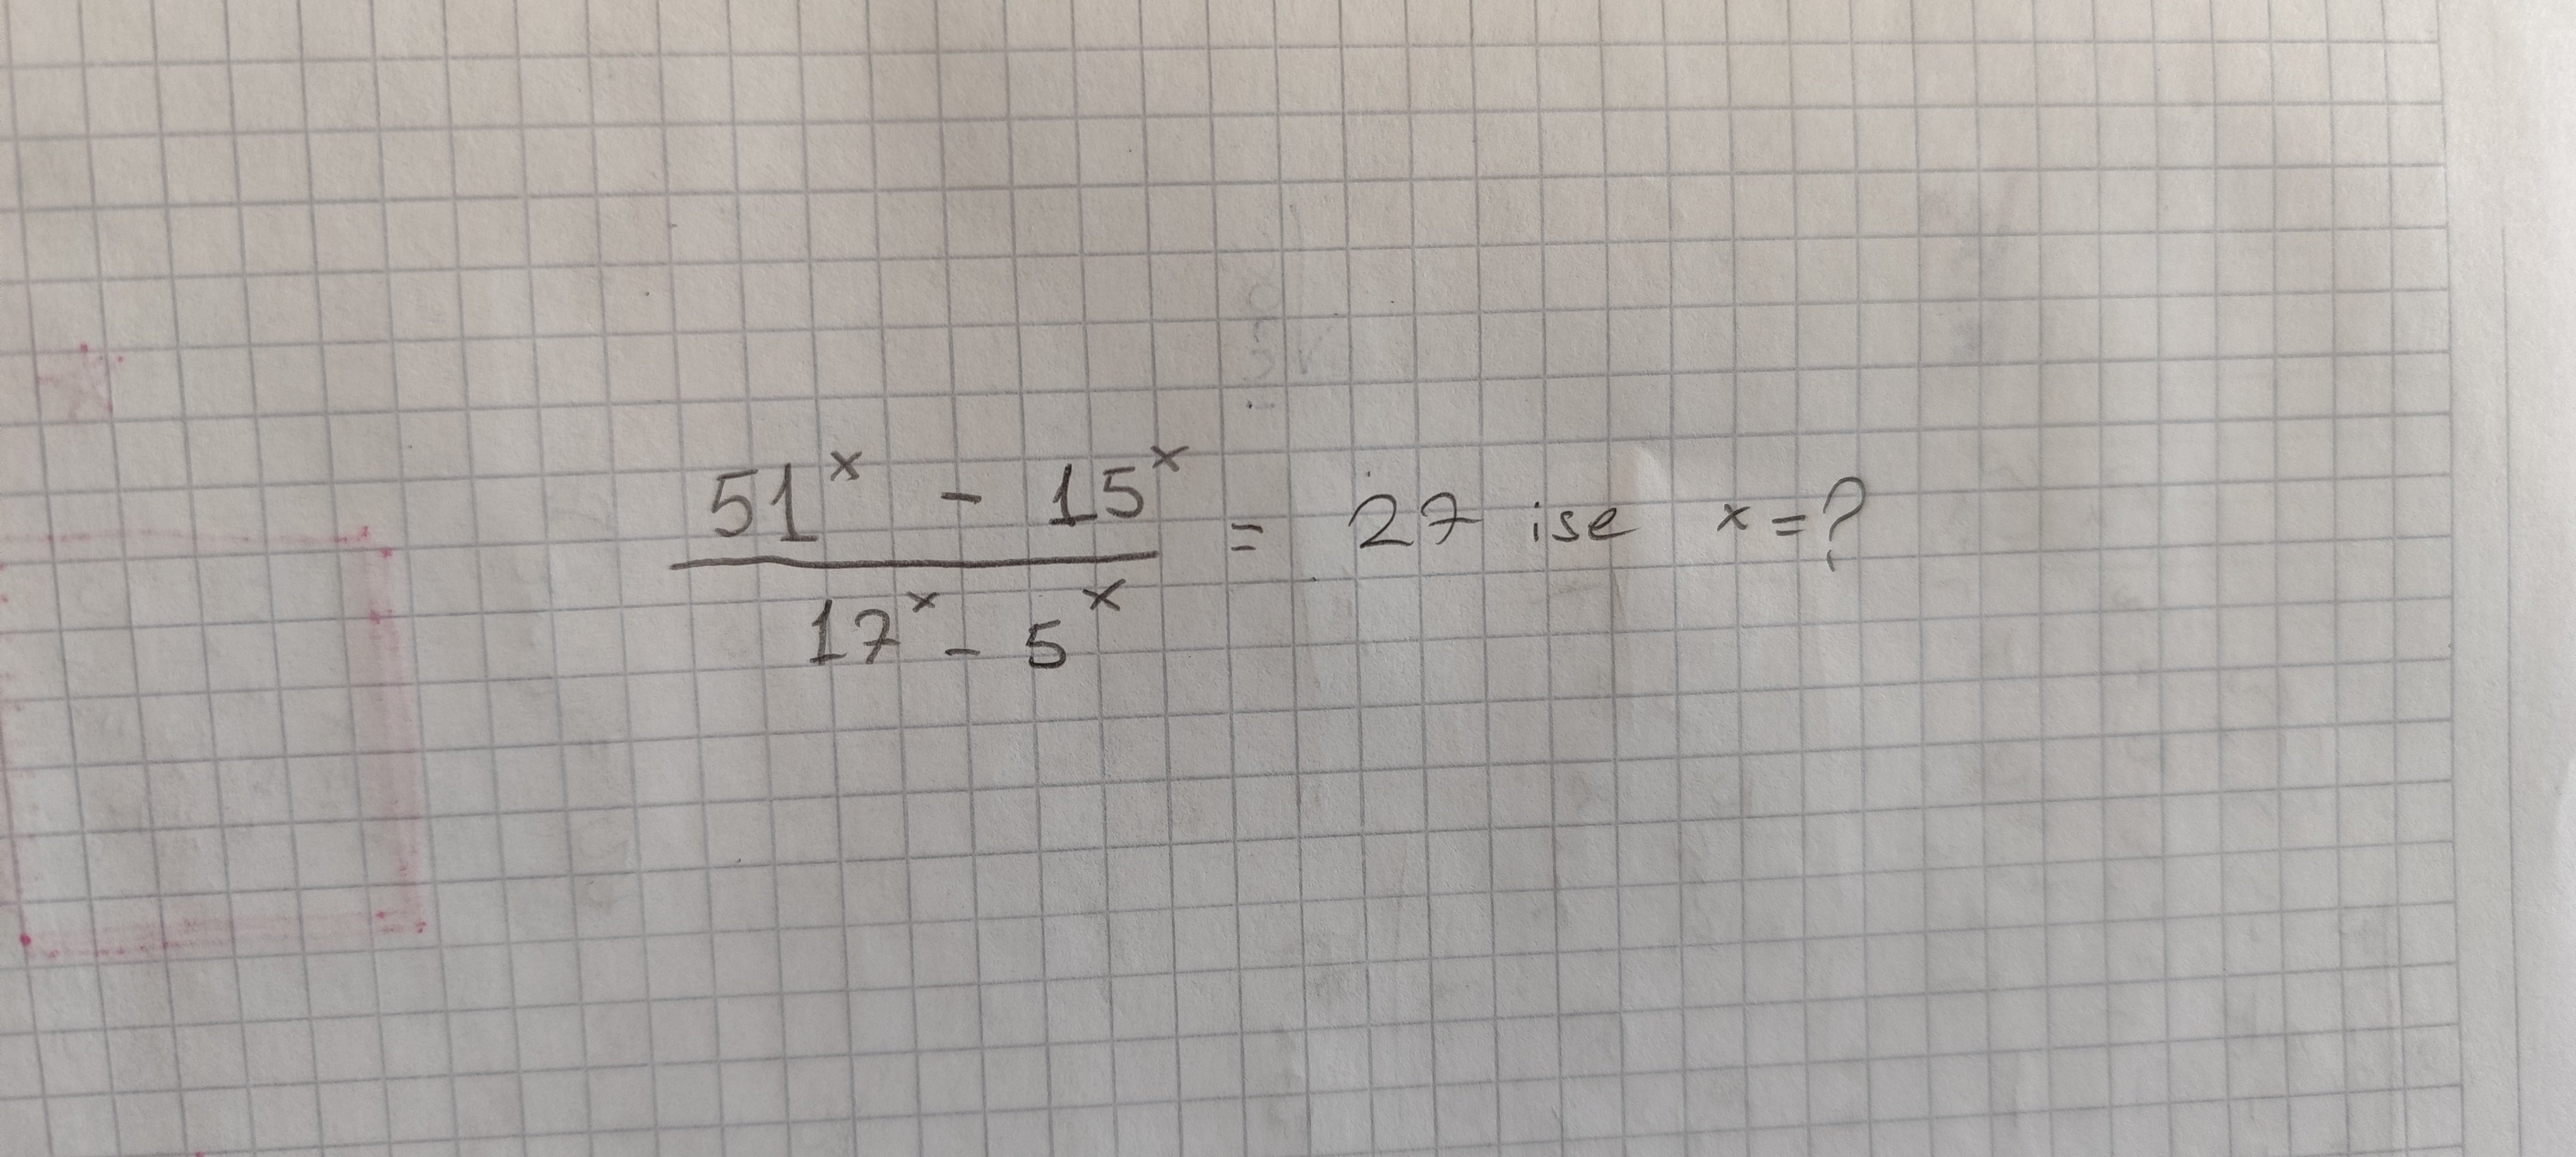 51^x - 15^x / 17^x - 5^x = 27 ise x=?